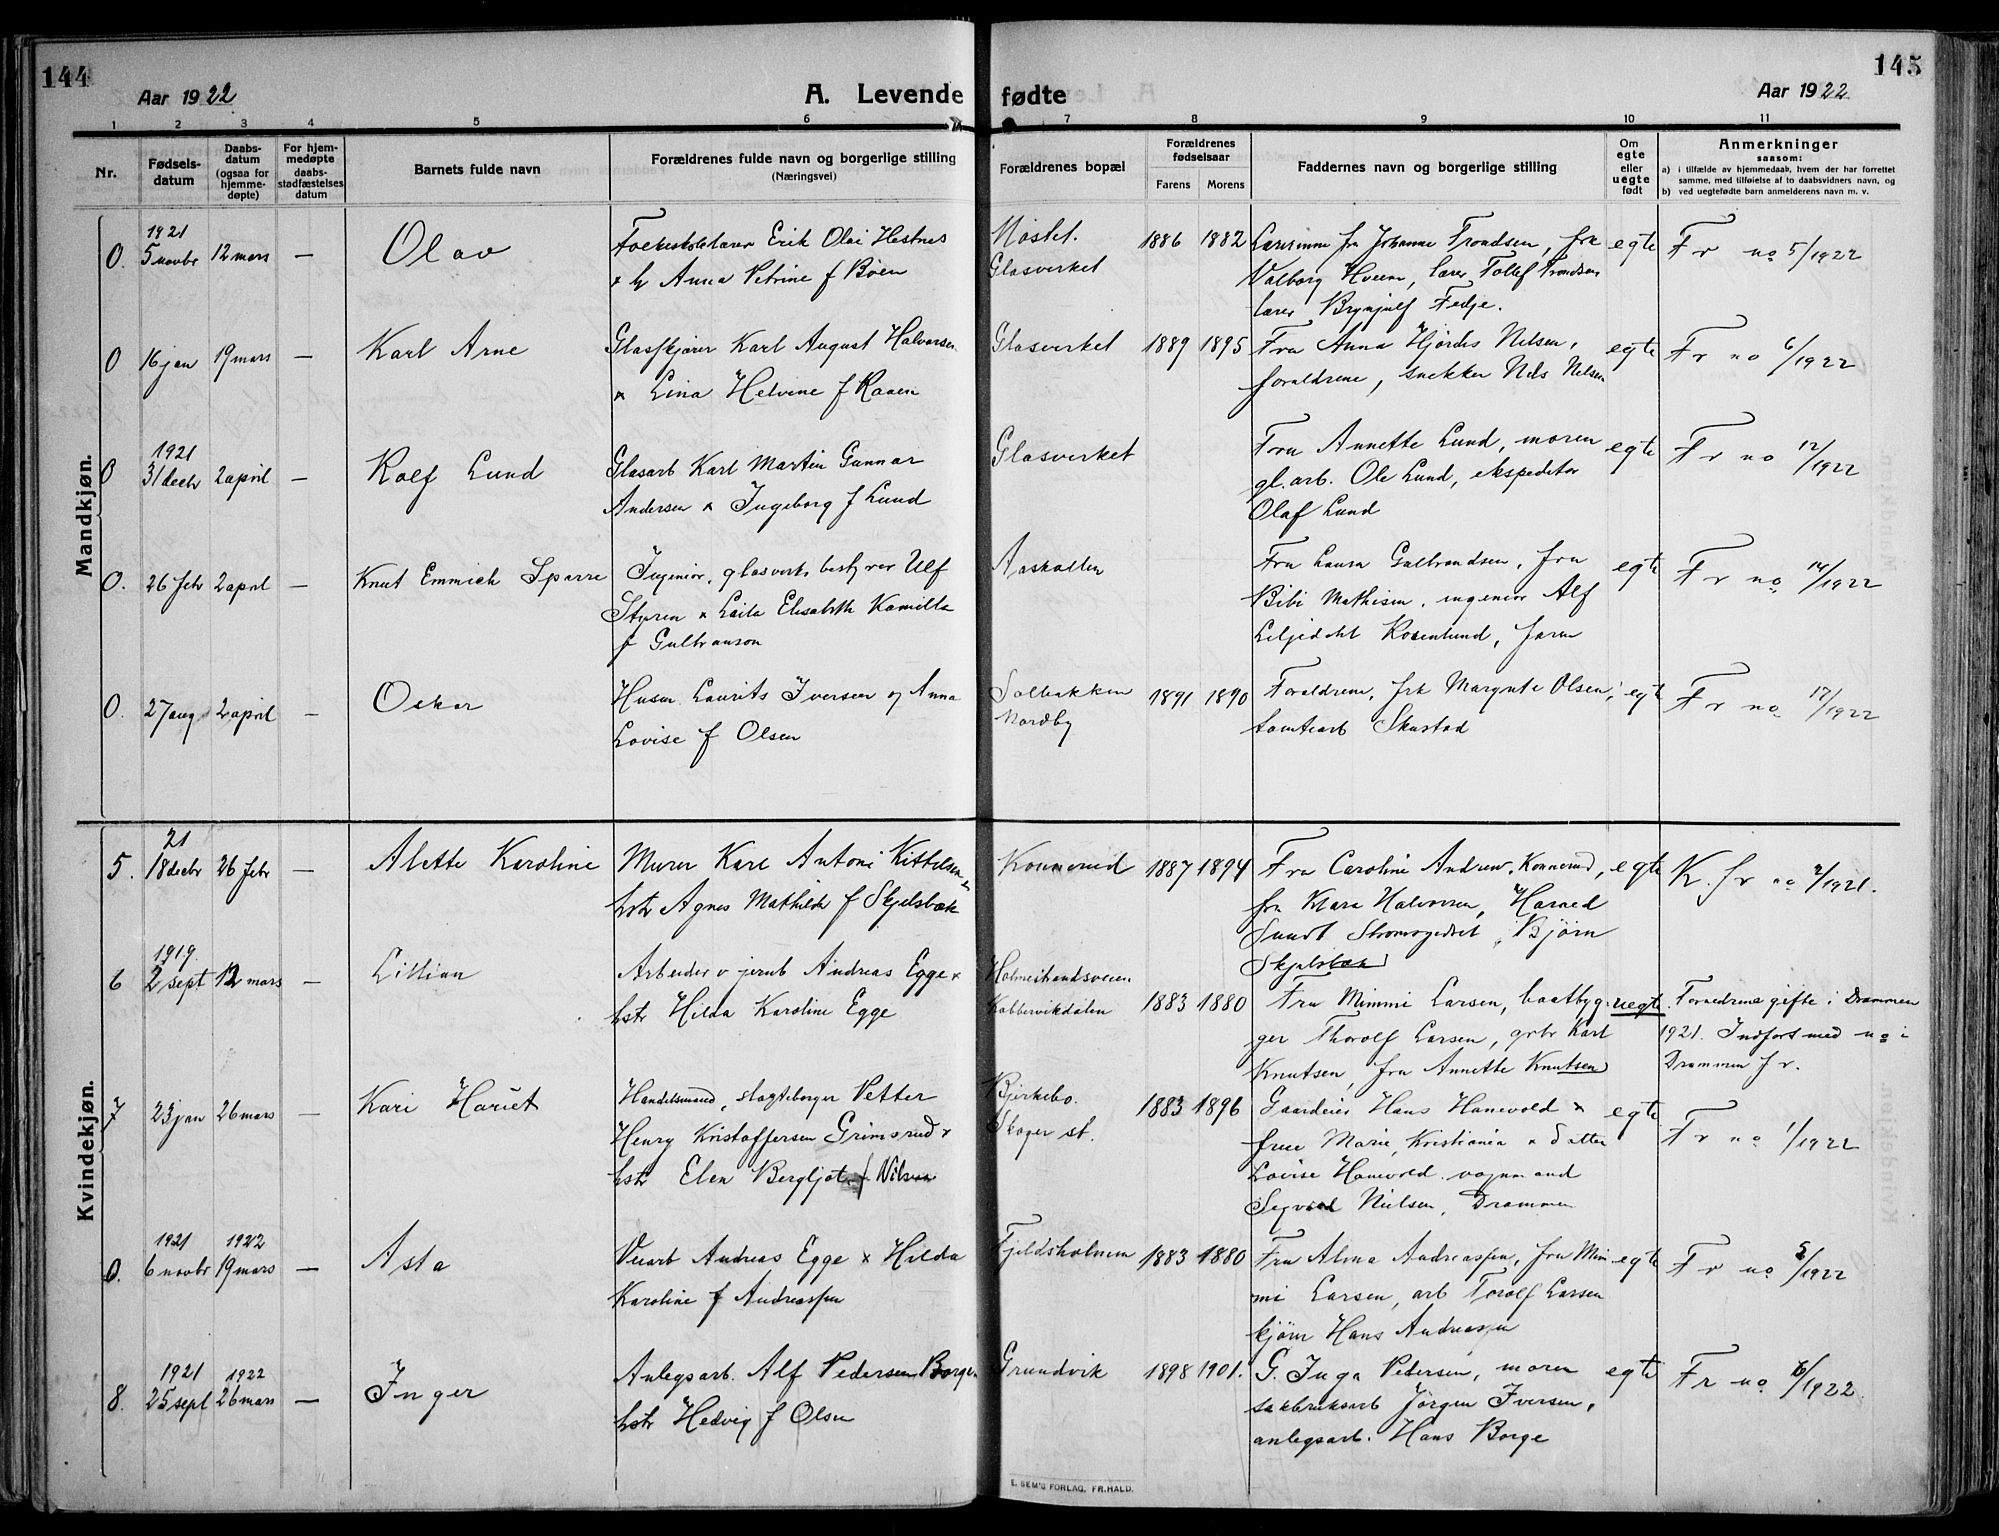 144
Aar 1922
A. Levende fødte
Aar 1922
145
1 2 3 4 5 6 7 8 9 10 11
Nr.
Fødsels-
datum
Daabs-
datum
(ogsaa for
hjemme-
døpte)
For hjem-
medøpte
daabs-
stadfæstelses
datum
Barnets fulde navn
Forældrenes fulde navn og borgerlige stilling
(Næringsvei)
Forældrenes bopæl
Forældrenes
fødselsaar
Farens Morens
Faddernes navn og borgerlige stilling
Om
egte
eller
uegte
født
Anmerkninger
saasom:
a) i tilfælde av hjemmedaab, hvem der har forrettet
samme, med tilføielse af to daabsvidners navn, og
b) ved uegtefødte barn anmelderens navn m. v.
Mandkjøn.
1921
0. 5 novbr 12 mars — Olav
Folkeskolelærer Erik Olai Hestnes
x h Anna Petrine f Bøen
Møstet.
Glasverket
1886 1882
Lærerinne frk Johanne Trondsen, frk
Valborg Hveem, lærer Tollef Trondsen
lærer Brynjulf Fedje.
egte
Fr no 5/1922
0 16 jan 19 mars — Karl Arne
Glasskjærer Karl August Halvorsen
x Lina Helvine f Raaen
Glasverket
1889 1895
Fru Anna Hjørdis Nilsen,
forældrene, snekker Nils Nilsen
egte
Fr no 6/1922
1921
0 31 decbr 2 april — Rolf Lund
Glasarb Karl Martin Gunnar
Andersen x Ingeborg f Lund
Glasverket
Fru Annette Lund, moren
gl.arb. Ole Lund, ekspeditør
Olaf Lund
egte
Fr no 12/1922
0. 26 febr 2 april — Knut Emmich Sparre
Ingeniør, glasverksbestyrer Ulf
Styren x Laila Elisabeth Kamilla
f Gulbranson
Aaskollen
Fru Laura Gulbrandsen, fru
Bibi Mathisen, ingeniør Alf
Liljedahl Rosenlund, faren
egte
Fr no 14/1922
0. 27 aug 2 april — Oskar
Husm Laurits Iversen og Anna
Lovise f Olsen
Solbakken
Nordby
1891 1890
Forældrene, frk Margrete Olsen,
tomtearb Skustad
egte
Fr no 17/1922
Kvindekjøn.
21
5. 18 decbr 26 febr — Alette Karoline
Murer Karl Antoni Kittelsen
hstr Agnes Mathilde f Skjelsbæk
Konnerud
1887 1894
Fru Caroline Andrew, Konnerud,
fru Klara Halvorsen, Harald
Sundt Strømsgodset, Bjørn
Skjelsbæk
egte
K. fr no 2/1921.
1919.
6 2 sept 12 mars — Lillian
Arbeider v jernb Andreas Egge x
hstr Hilda Karoline Egge
Holmestrandsveien
Kobbervikdalen
1883 1880
Fru Mimmi Larsen, baatbyg-
ger Thorolf Larsen, grbr Karl
Knutsen, fru Annette Knutsen
uegte
Forældrene gifte i Drammen
1921. Indført med no i
Drammen fr.
7 23 jan 26 mars — Kari Hariet
Handelsmand, slagteborger Petter
Henry Kristoffersen Grimsrud x
hstr Elen Bergljot f Nilsen
Bjerkebo.
Skoger st.
1883 1896
Gaardeier Hans Hanevold x
frue Marie, Kristiania x datter
Lovise Hanevold, vognmand
Sigvald Nielsen, Drammen
egte
Fr no 1/1922
1921 1922
0. 6 novbr 19 mars — Asta
Veiarb Andreas Egge x Hilda
Karoline f Andreassen
Fjeldsholmen
1883 1880
Fru Alma Andreassen, fru Mim
mi Larsen, arb Torolf Larsen
kjører Hans Andreassen
egte
Fr no 5/1922
1921 1922
8. 25 sept 26 mars — Inger
Anlegsarb. Alf Pedersen Borge
hstr Hedvig f Olsen
Grundvik
1898 1901.
G. Inga Pedersen, moren
sakbruksarb Jørgen Iversen,
anlegsarb. Hans Borge
egte
Fr no 6/1922.
E. SEM'S FORLAG, FR.HALD.